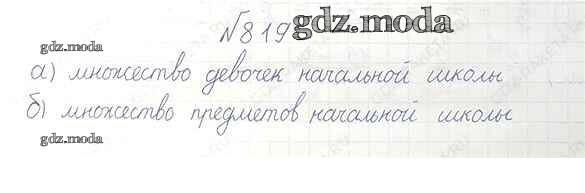 №819 gdz.moda
gdz.moda
а) множество девочек начальной школы
б) множество предметов начальной школы
gdz.moda